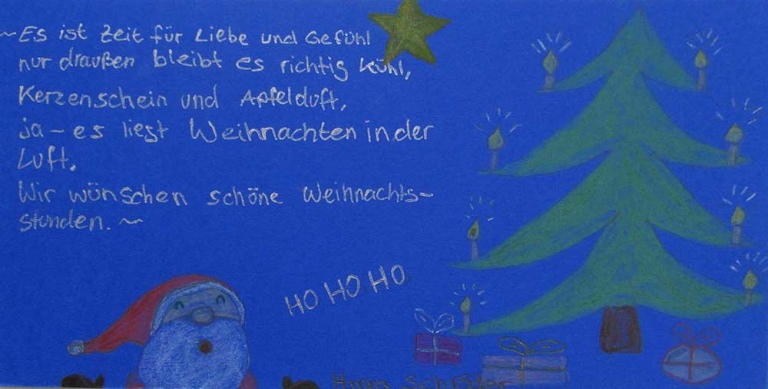 ~ Es ist Zeit für Liebe und Gefühl
nur draußen bleibt es richtig kühl,
Kerzenschein und Apfelduft,
ja - es liegt Weihnachten in der
Luft.
Wir wünschen schöne Weihnachts-
stunden. ~
HO HO HO